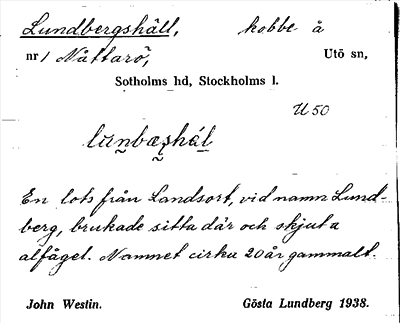 Lundbergshäll, kobbe å
nr 1 Nåttarö, Utö sn,
Sotholms hd, Stockholms l.
U 50
En lots från Landsort, vid namn Lund-
berg, brukade sitta där och skjuta
alfågel. Namnet cirka 20 år gammalt.
John Westin. Gösta Lundberg 1938.